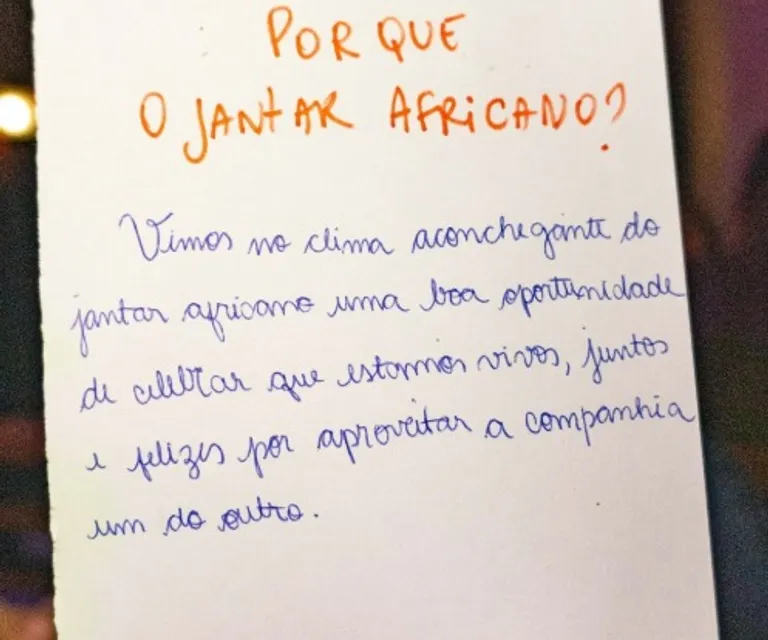 POR QUE
O JANTAR AFRICANO?
Vimos no clima aconchegante do
jantar africano uma boa oportunidade
de celebrar que estamos vivos, juntos
e felizes por aproveitar a companhia
um do outro.